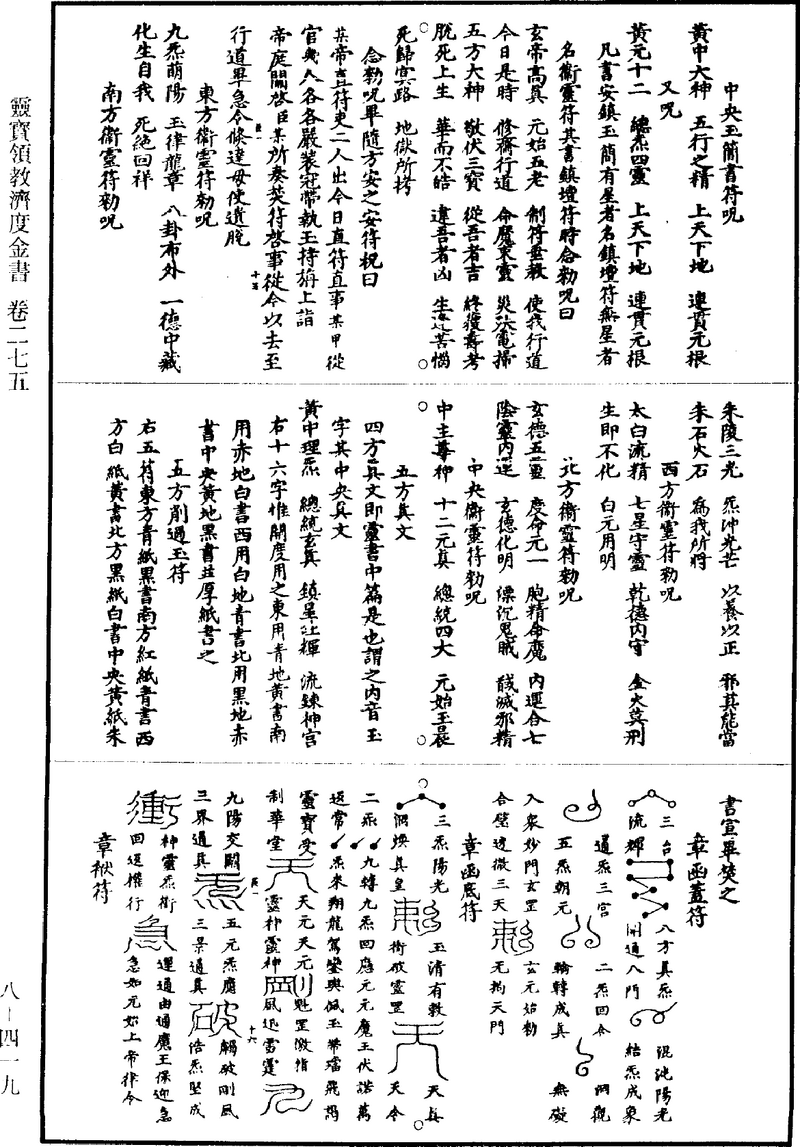 靈寶領教濟度金書 卷二七五
八-四一九
中央玉簡書符呪
黃中大神 五行之精 上天下地 連貫元根
又呪
黃元十二 總炁四靈 上天下地 連貫元根
凡書安鎮玉簡有星者名鎮壇符無星者
名衞靈符其書鎮壇符時念勑呪曰
玄帝高真 元始五老 制符垂教 使我行道
今日是時 修齋行道 命魔束靈 災袄電掃
五方大神 敬伏三寶 從吾者吉 終獲壽考
脫死上生 華而不皓 違吾者凶 生遭苦惱
死歸冥路 地獄所拷
念勑呪畢隨方安之安符祝曰
某帝直符吏二人出今日直符直事某甲從
官幾人各各嚴裝冠帶執玉持旃上詣
帝庭關啓臣某所奏焚符啓事從今以去至
行道畢急令條達毋使遺脫
東方衞靈符勑呪
九炁萌陽 玉律龍章 八卦布外 一德中藏
化生自我 死絕回祥
南方衞靈符勑呪
朱陵三光 炁沖光芒 以養以正 邪其能當
朱石火石 爲我所將
西方衞靈符勑呪
太白流精 七星守靈 乾德內守 金火莫刑
生即不化 白元用明
北方衞靈符勑呪
玄德五靈 慶命元一 胞精命魔 內運合七
陰靈內運 玄德化明 漂沉鬼賊 馘滅邪精
中央衞靈符勑呪
中主尊神 十二元真 總統四大 元始玉晨
五方真文
四方真文即靈書中篇是也謂之內音玉
字其中央真文
黃中理炁 總統玄真 鎮星吐輝 流鍊神宮
右十六字惟開度用之東用青地黃書南
用赤地白書西用白地青書北用黑地赤
書中央黃地黑書並厚紙書之
五方前通玉符
右五符東方青紙黑書南方紅紙青書西
方白紙黃書北方黑紙白書中央黃紙朱
書宣畢焚之
章函蓋符
三台 八方真炁 混沌陽光
流輝 開通八門 結炁成象
通炁三宮 二炁回令 洞觀
五炁朝元 輪轉成真 無礙
入衆妙門玄罡 玄元始勑
合璧遶微三天 无拘天門
章函底符
三炁陽光 玉清有敕 天真
洞煥真皇 衝破靈罡 天令
二炁 九轉九炁回應元元魔王伏諾萬
返常 炁來翔龍駕鑾輿佩玉帶璫飛揭
靈寶受 天元天元 魁罡激指
制華堂 靈神靈神 風迅雷霆
九陽交關 五元炁魔 觸破剛風
三界通真 三景通真 浩炁堅成
神靈炁衞 運通由通魔王保迎急
回運權行 急如元始上帝律令
章袱符